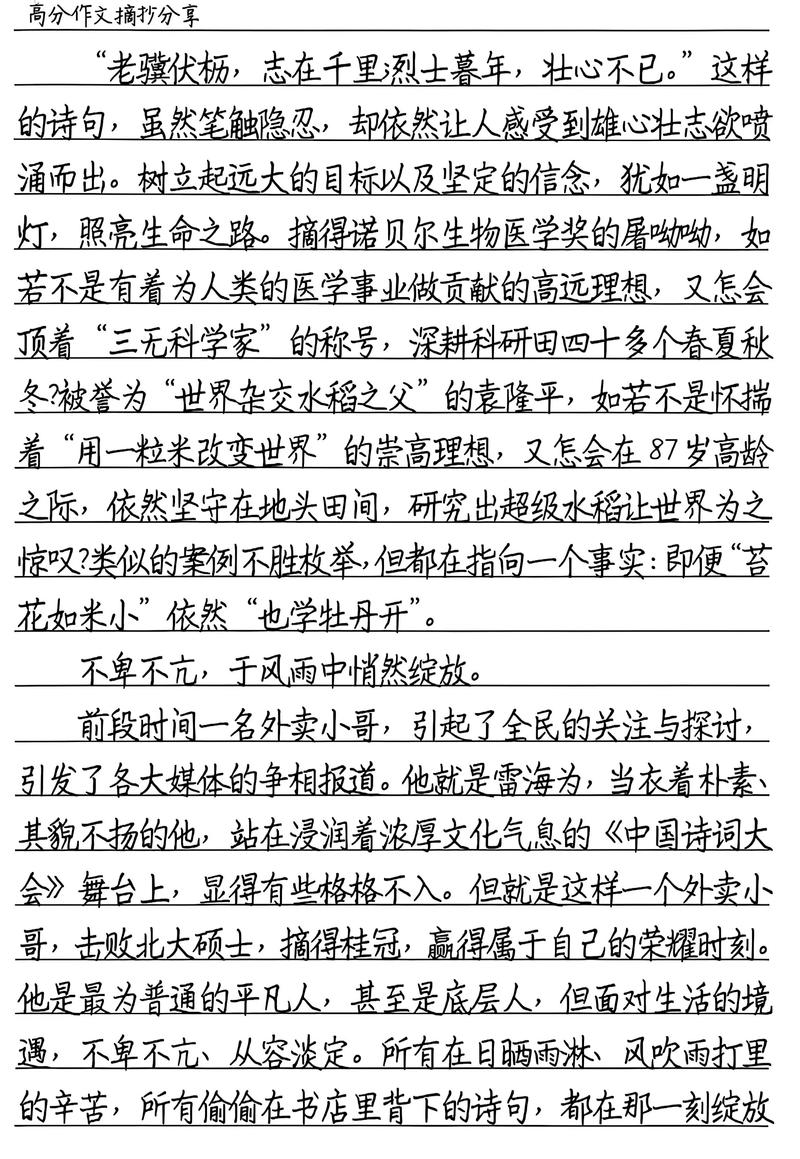 高分作文摘抄分享
“老骥伏枥，志在千里；烈士暮年，壮心不已。”这样
的诗句，虽然笔触隐忍，却依然让人感受到雄心壮志欲喷
涌而出。树立起远大的目标以及坚定的信念，犹如一盏明
灯，照亮生命之路。摘得诺贝尔生物医学奖的屠呦呦，如
若不是有着为人类的医学事业做贡献的高远理想，又怎会
顶着“三无科学家”的称号，深耕科研田四十多个春夏秋
冬?被誉为“世界杂交水稻之父”的袁隆平，如若不是怀揣
着“用一粒米改变世界”的崇高理想，又怎会在87岁高龄
之际，依然坚守在地头田间，研究出超级水稻让世界为之
惊叹?类似的案例不胜枚举，但都在指向一个事实：即便“苔
花如米小”依然“也学牡丹开”。
不卑不亢，于风雨中悄然绽放。
前段时间一名外卖小哥，引起了全民的关注与探讨，
引发了各大媒体的争相报道。他就是雷海为，当衣着朴素、
其貌不扬的他，站在浸润着浓厚文化气息的《中国诗词大
会》舞台上，显得有些格格不入。但就是这样一个外卖小
哥，击败北大硕士，摘得桂冠，赢得属于自己的荣耀时刻。
他是最为普通的平凡人，甚至是底层人，但面对生活的境
遇，不卑不亢、从容淡定。所有在日晒雨淋、风吹雨打里
的辛苦，所有偷偷在书店里背下的诗句，都在那一刻绽放